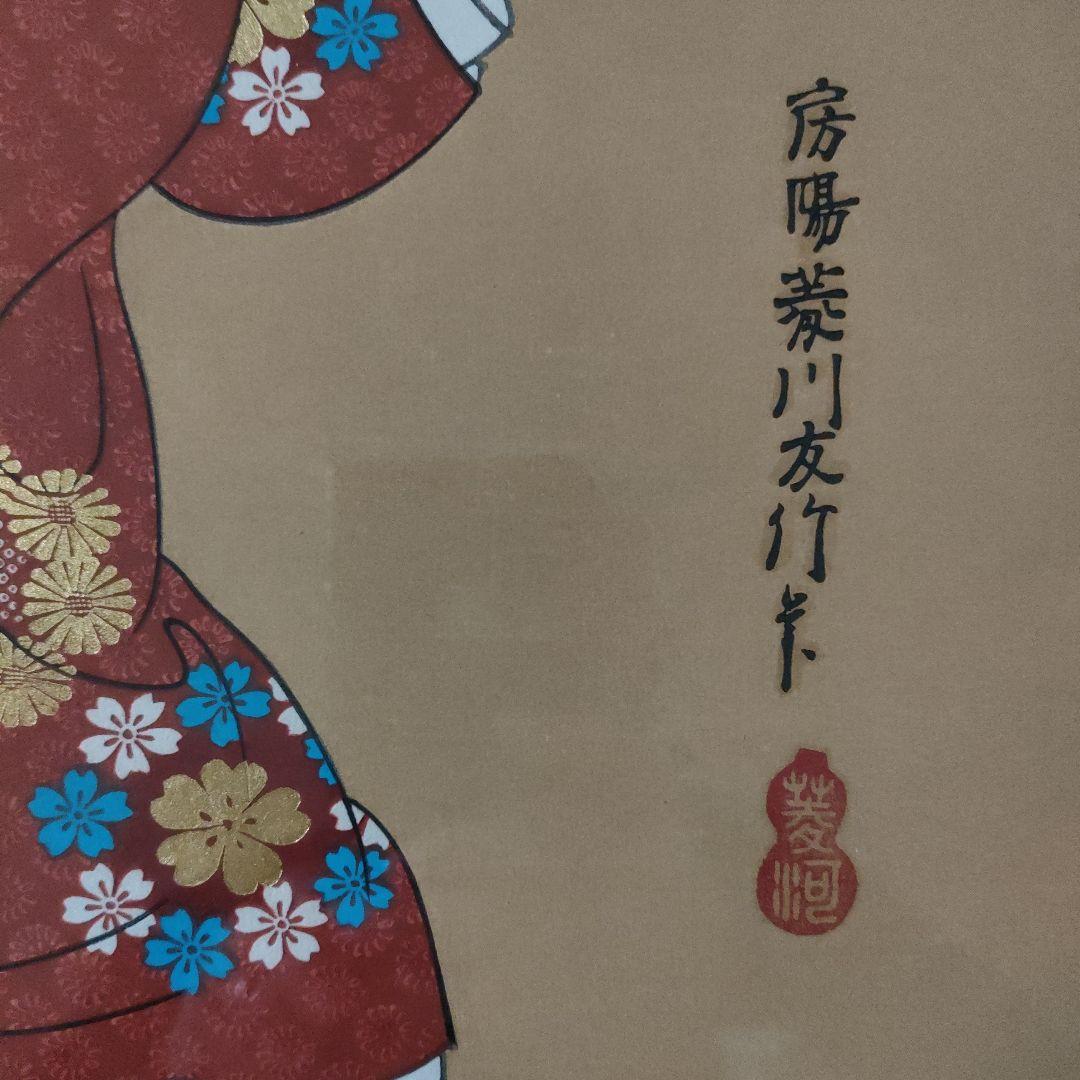 房陽菱川友竹筆
菱河